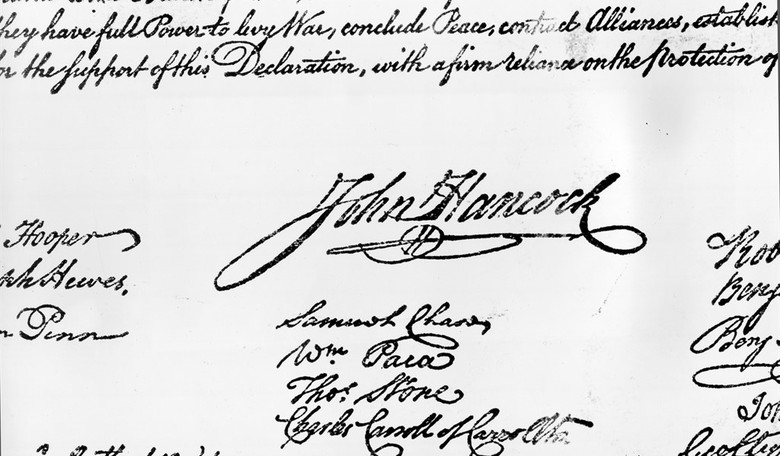 they have full Power to levy War, conclude Peace, contract Alliances, establish
for the support of this Declaration, with a firm reliance on the Protection of
John Hancock
Hooper
Hewes,
Penn
Samuel Chase
Wm. Paca
Thos. Stone
Charles Carroll of Carrollton
Benj